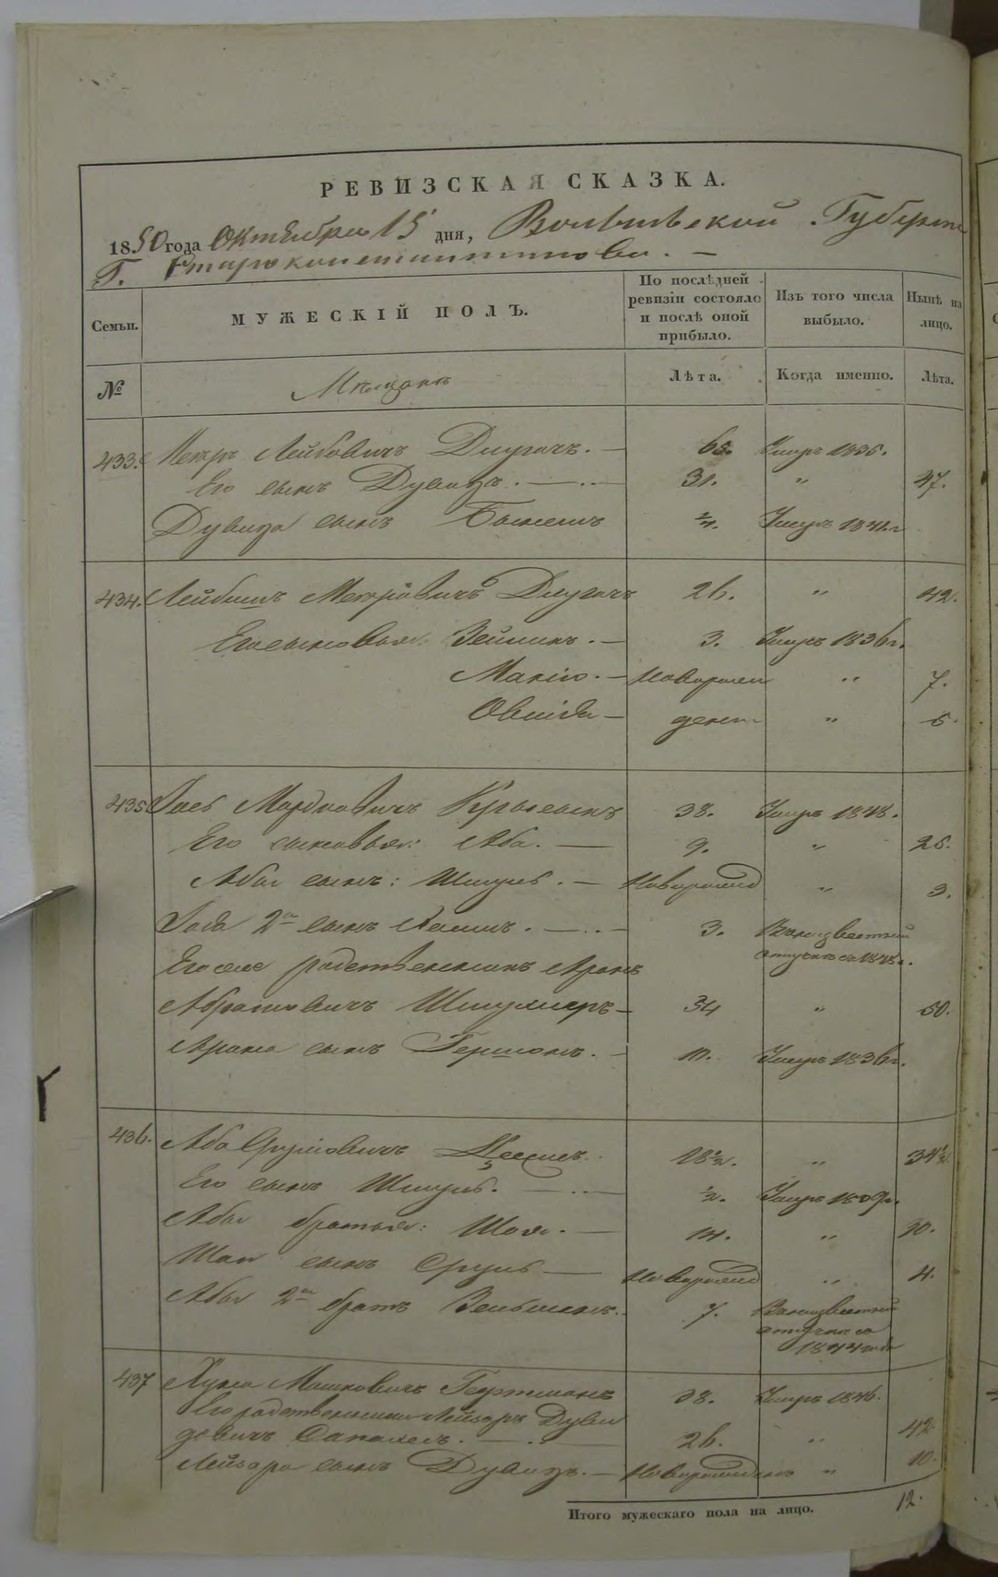 РЕВИЗСКАЯ СКАЗКА.
1850 года Октября 15 дня, Волынской Губерни
Г. Староконстантинова. —
Семьи. МУЖЕСКІЙ ПОЛЪ. По послѣдней ревизіи состояло и послѣ оной прибыло. Изъ того числа выбыло. Нынѣ на лицо.
№ Мѣщане Лѣта. Когда именно. Лѣта.
433. Лейбовичъ Длугачъ. — 65. Умеръ 1836.
Его сынъ Дувидъ. — 31. " 47.
Дувида сынъ Умеръ 1841.
434. Лейбишъ Длугачъ 26. " 42.
Его сыновья: Зейликъ. — 3. Умеръ 1836 г.
— Новорожден "
7.
— денъ " 5.
435 Мордковичъ 38. Умеръ 1848.
Его сыновья: Аба. — 9. " 25.
Абы сынъ: Шмуль. — Новорожд " 3.
2й сынъ — 3. В неизвѣстной
отлучкѣ съ 1848 г.
Его же родственникъ Аронъ
Абрамовичъ — 34 " 50.
Арона сынъ Гершонъ. — 11. Умеръ 1836 г.
436. Аба Сруліовичъ 18½. " 34½.
Его сынъ Шмуль. — ½. Умеръ 1839 г.
Абы братья: Шоя. — 14. " 30.
Шои сынъ Сруль — Новорожд " 4.
Абы 2й братъ Зельманъ. 7. В неизвѣстной
отлучкѣ съ
1844 года
437 Мошковичъ 38. Умеръ 1846.
Его родственникъ Лейзоръ Дуви
довичъ — 26. " 42.
Лейзора сынъ Дувидъ. — Новорожденъ " 10.
Итого мужескаго пола на лицо. 12.